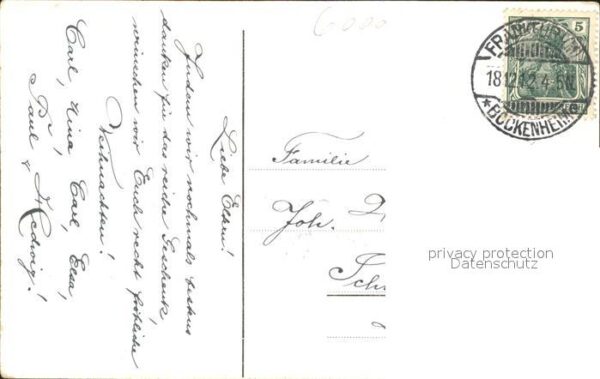 6000
Liebe Eltern!
Indem wir nochmals bestens
danken für das reiche Geschenk,
wünschen wir Euch recht fröhliche
Weihnachten!
Carl, Tina, Carl, Elsa,
Paul & Hedwig!
Familie
Joh.
Sch
5
FRANKFURT
18.12.12.4-5N
*BOCKENHEIM
privacy protection
Datenschutz